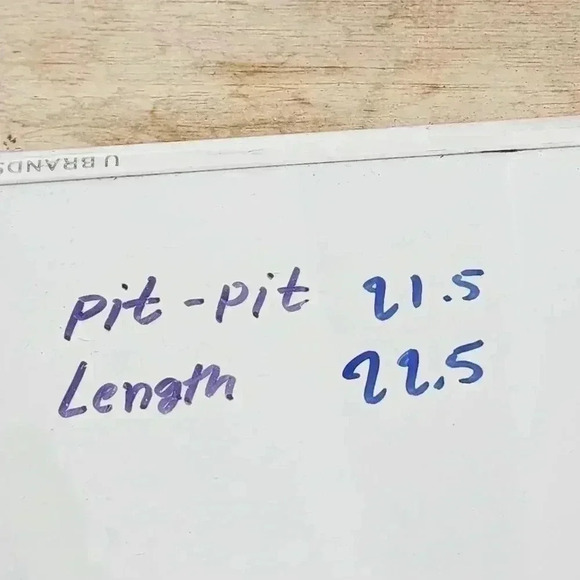 U BRANDS
pit - pit 21.5
Length 22.5